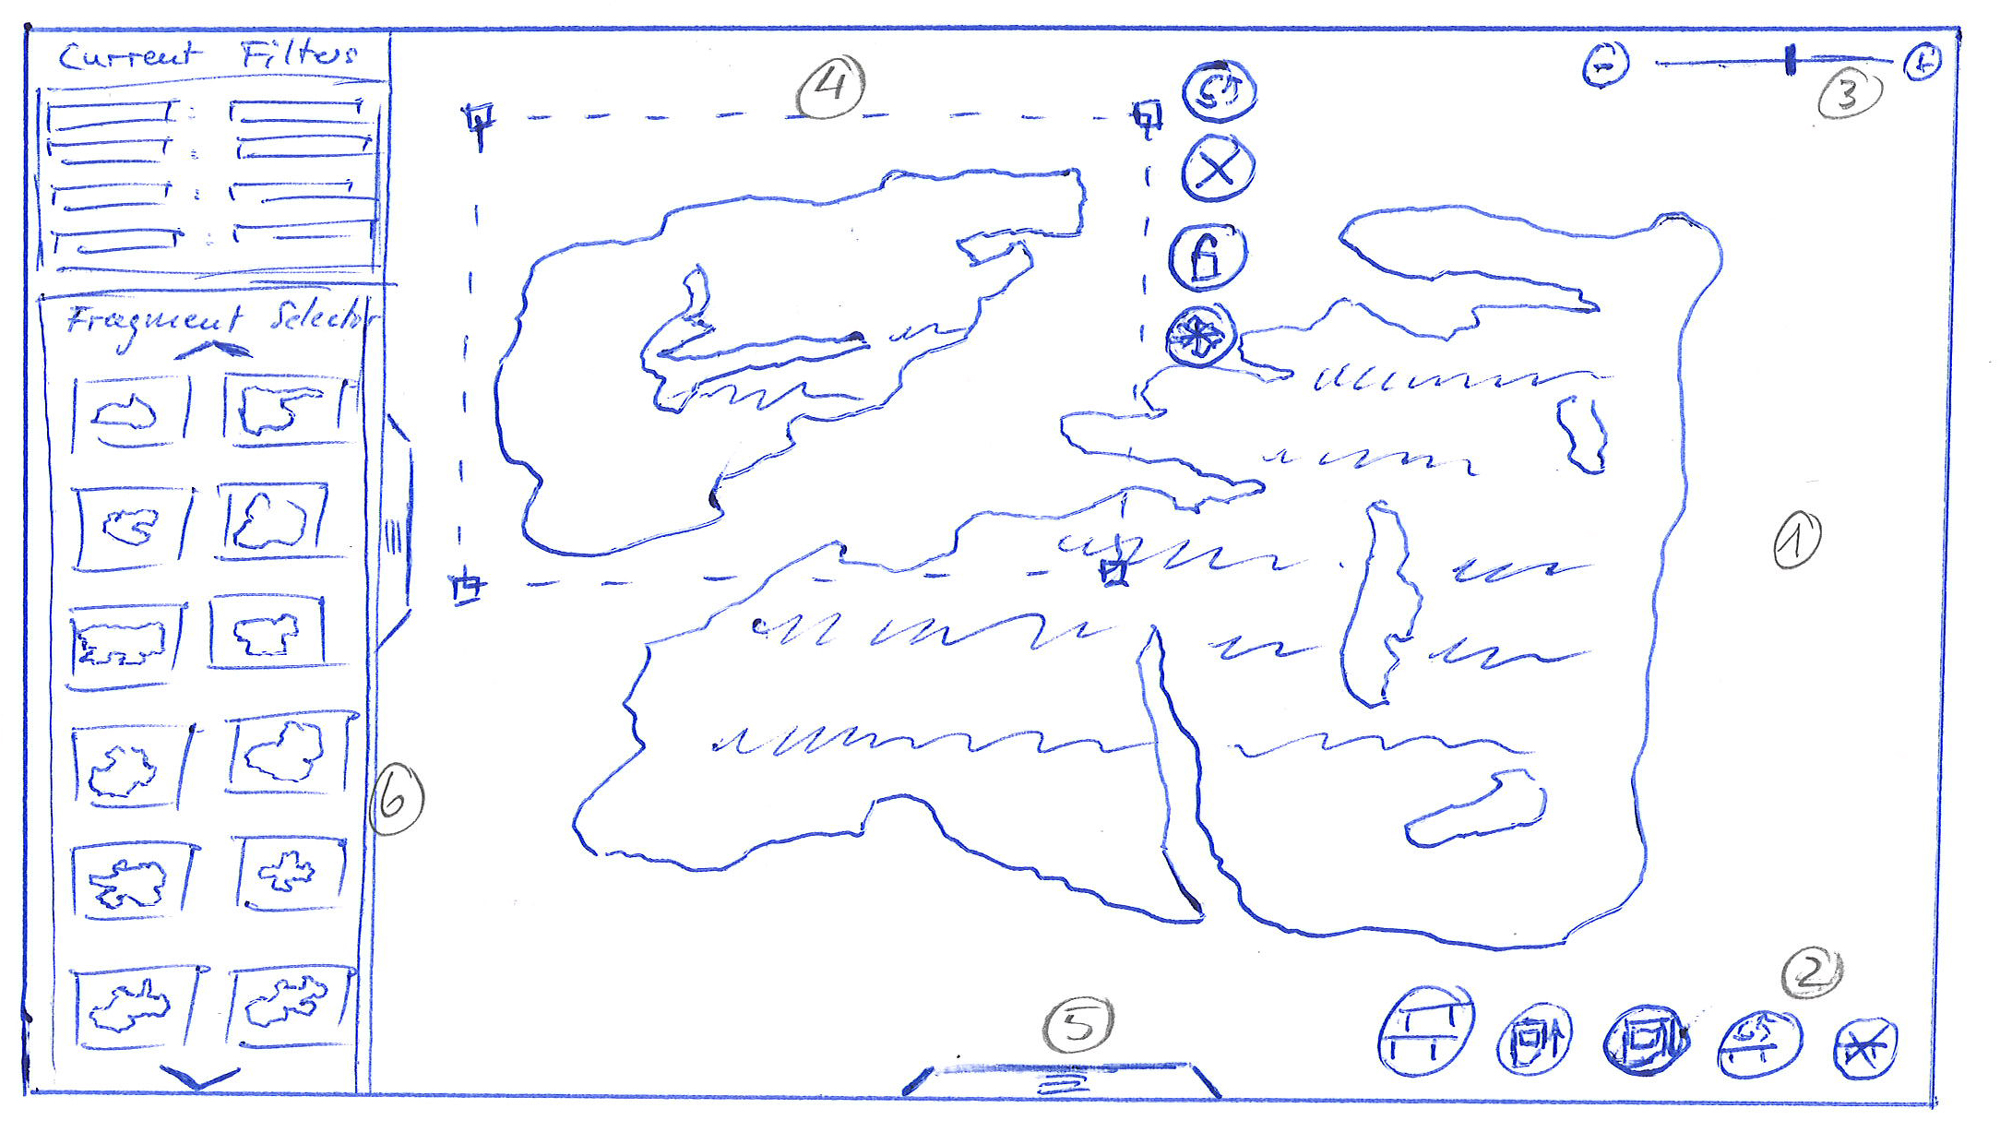 Current Filters
4
3
Fragment Selector
1
6
2
5